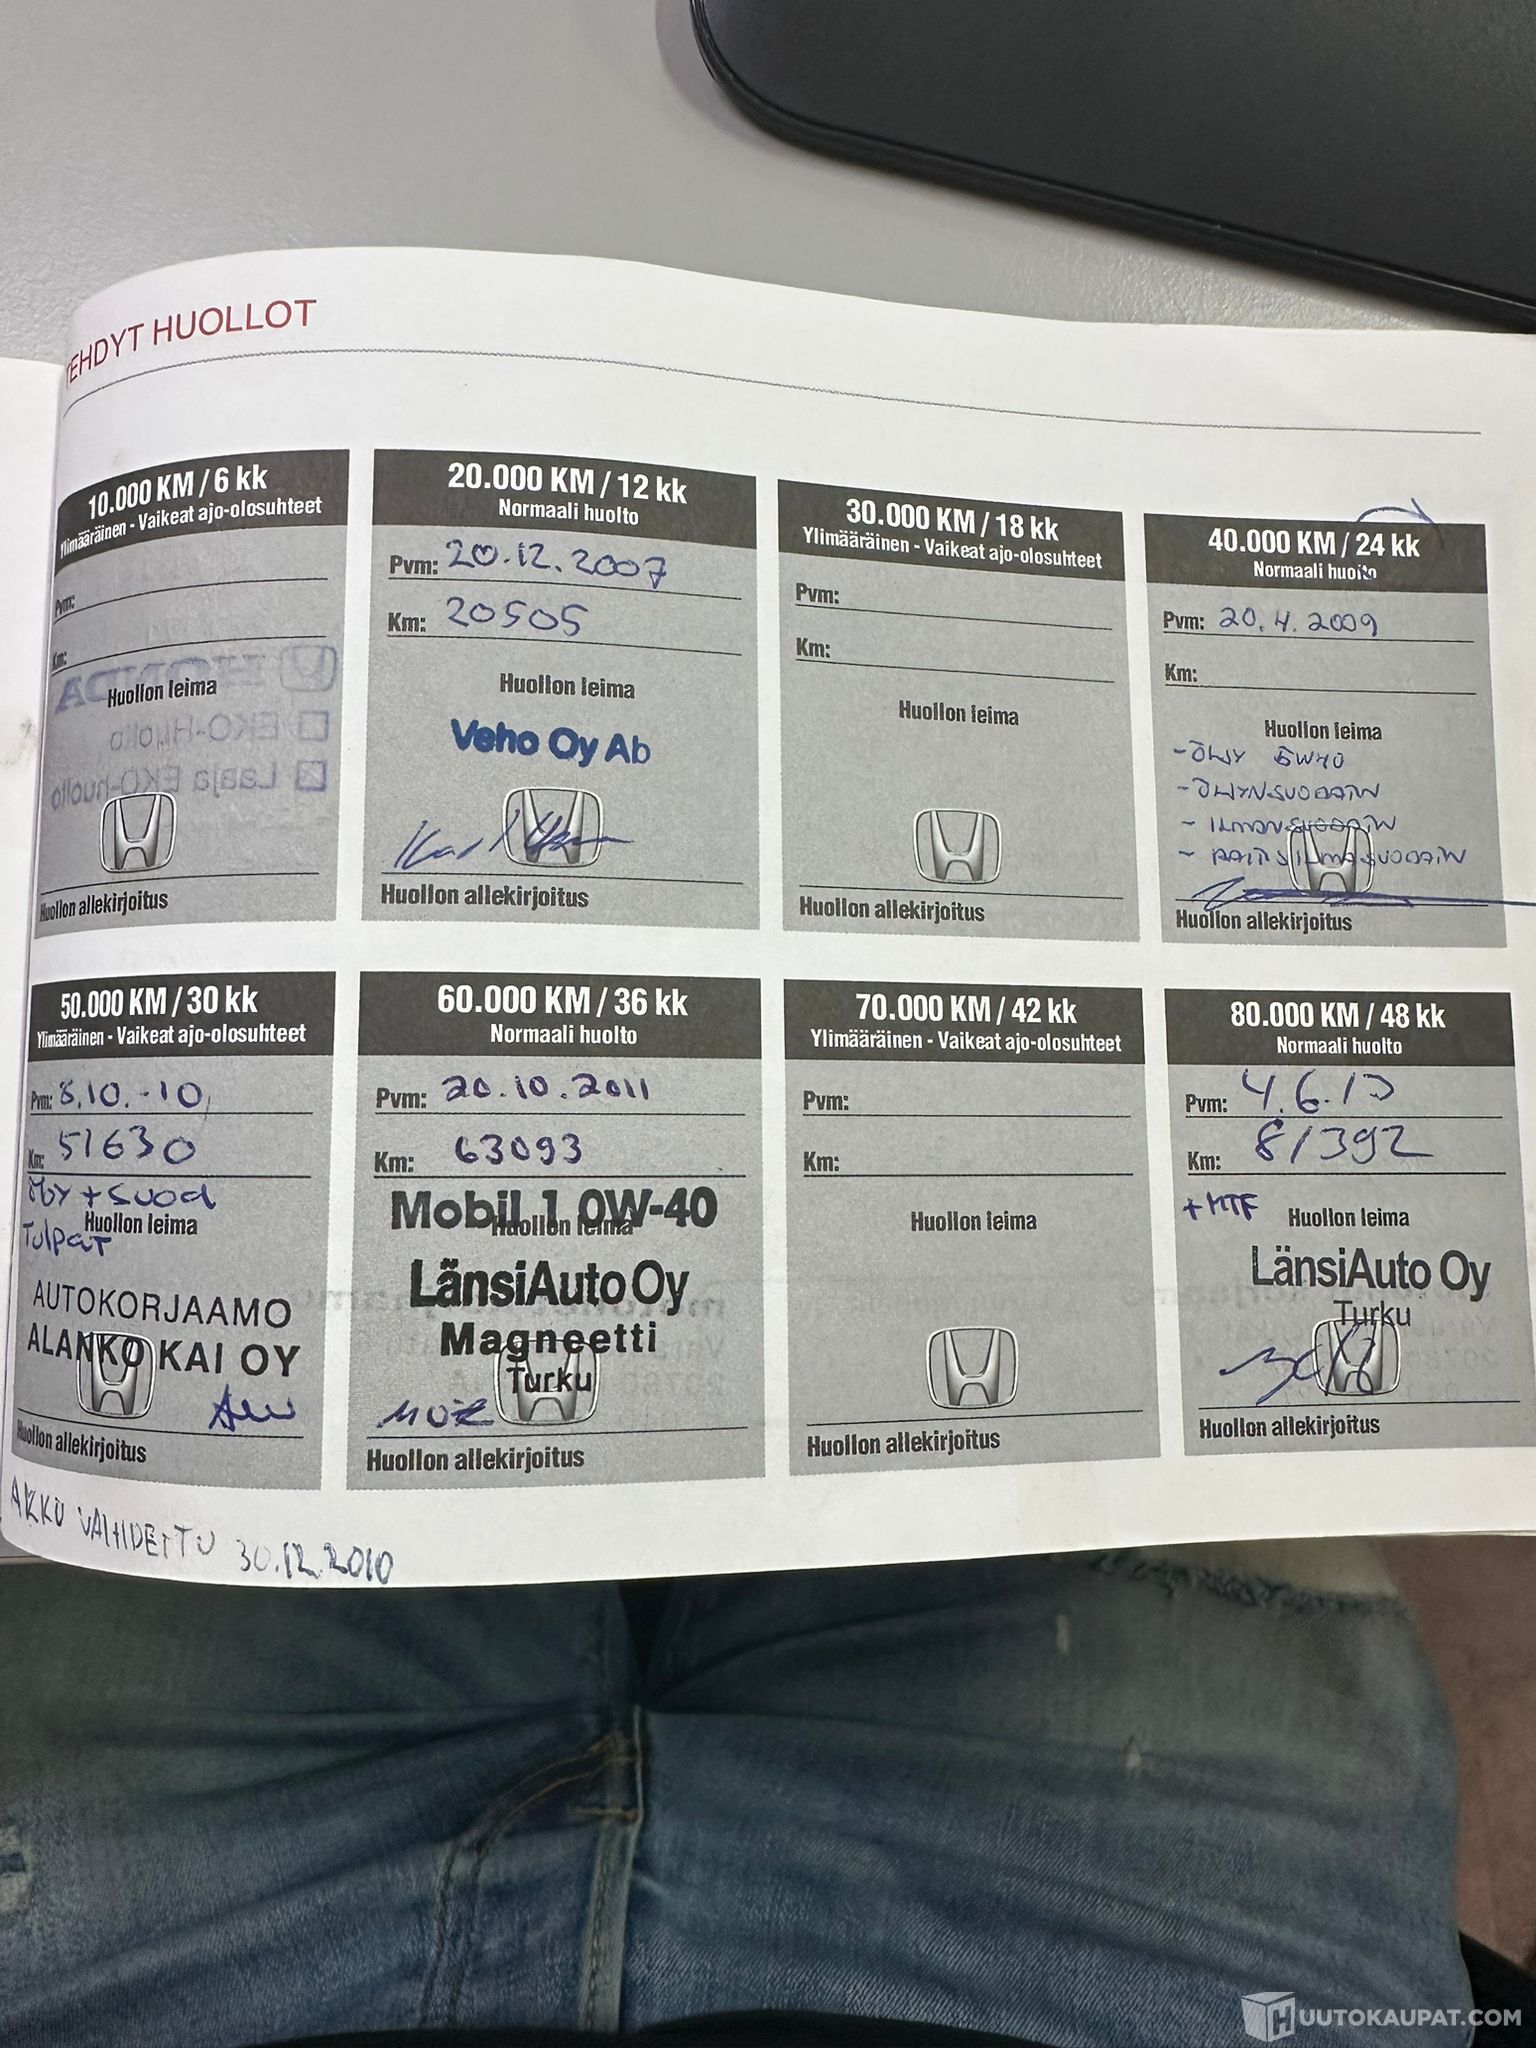 TEHDYT HUOLLOT
10.000 KM / 6 kk
Ylimääräinen - Vaikeat ajo-olosuhteet
Pvm:
Km:
Huollon leima
HONDA
EKO-Huolto
Laaja EKO-huolto
Huollon allekirjoitus
20.000 KM / 12 kk
Normaali huolto
Pvm: 20.12.2007
Km: 20505
Huollon leima
Veho Oy Ab
Huollon allekirjoitus
30.000 KM / 18 kk
Ylimääräinen - Vaikeat ajo-olosuhteet
Pvm:
Km:
Huollon leima
Huollon allekirjoitus
40.000 KM / 24 kk
Normaali huolto
Pvm: 20.4.2009
Km:
Huollon leima
- ÖLJY 5W40
- ÖLJYNSUODATIN
- ILMANSUODATIN
- RAITISILMASUODATIN
Huollon allekirjoitus
50.000 KM / 30 kk
Ylimääräinen - Vaikeat ajo-olosuhteet
Pvm: 8.10.-10
Km: 51630
+ suod
Huollon leima
Tulpat
AUTOKORJAAMO
ALANKO KAI OY
Huollon allekirjoitus
60.000 KM / 36 kk
Normaali huolto
Pvm: 20.10.2011
Km: 63093
Mobil 1 0W-40
Huollon leima
LänsiAuto Oy
Magneetti
Turku
Huollon allekirjoitus
70.000 KM / 42 kk
Ylimääräinen - Vaikeat ajo-olosuhteet
Pvm:
Km:
Huollon leima
Huollon allekirjoitus
80.000 KM / 48 kk
Normaali huolto
Pvm: 4.6.13
Km: 81392
+ MTF
Huollon leima
LänsiAuto Oy
Turku
Huollon allekirjoitus
AKKU VAIHDETTU 30.12.2010
HUUTOKAUPAT.COM